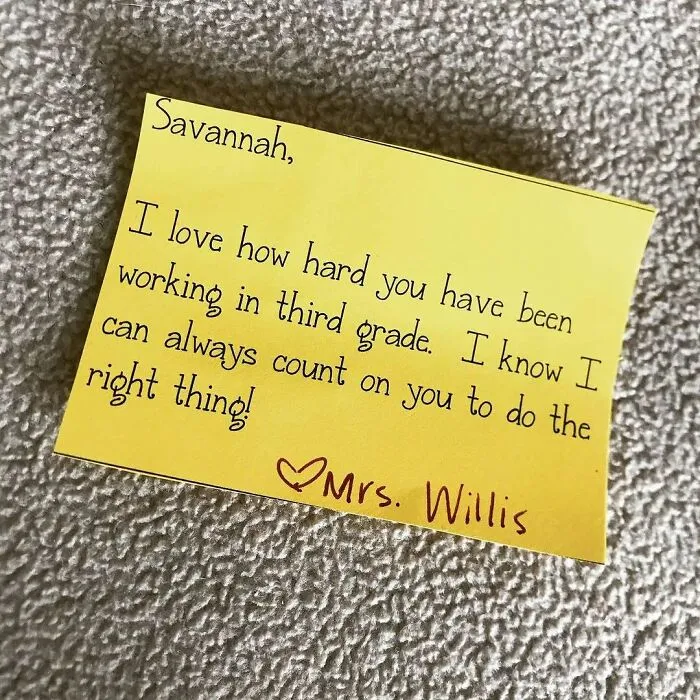 Savannah,
I love how hard you have been
working in third grade.  I know I
can always count on you to do the
right thing!
♡Mrs. Willis